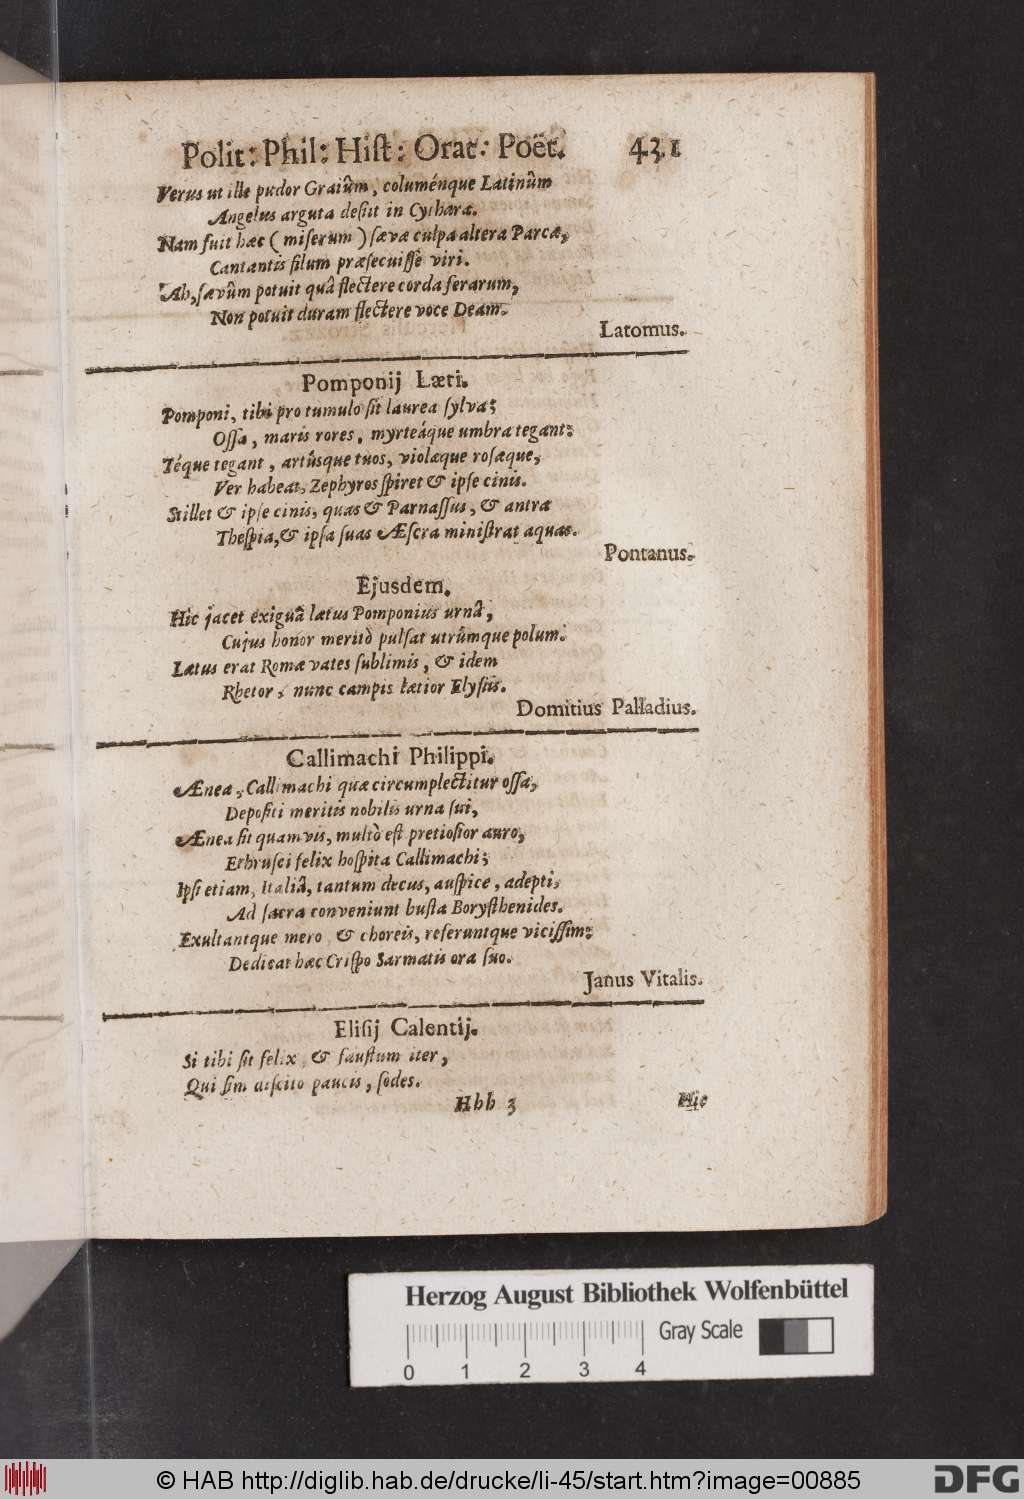 Polit: Phil: Hiſt: Orat: Poët. 431
Verus ut ille pudor Graiûm, columénque Latinûm
Angelus arguta deſiit in Cythara.
Nam fuit hæc ( miſerum ) ſævæ culpa altera Parcæ,
Cantantis filum præſecuiſſe viri.
Ah, ſævûm potuit quâ flectere corda ferarum,
Non potuit duram flectere voce Deam.
Latomus.
Pomponij Læti.
Pomponi, tibi pro tumulo ſit laurea ſylva;
Oſſa, maris rores, myrteáque umbra tegant:
Téque tegant, artúsque tuos, violæque roſæque,
Ver habeat, Zephyros ſpiret & ipſe cinis.
Stillet & ipſe cinis, quas & Parnaſſus, & antra
Theſpia, & ipſa ſuas Æſcra miniſtrat aquas.
Pontanus.
Ejusdem.
Hic jacet exiguâ lætus Pomponius urnâ,
Cujus honor meritò pulſat utrûmque polum.
Lætus erat Romæ vates ſublimis, & idem
Rhetor, nunc campis lætior Elyſiis.
Domitius Palladius.
Callimachi Philippi.
Ænea, Callimachi quæ circumplectitur oſſa,
Depoſiti meritis nobilis urna ſui,
Ænea ſit quamvis, multò eſt pretioſior auro,
Ethruſci felix hoſpita Callimachi;
Ipſi etiam, Italiâ, tantum decus, auſpice, adepti,
Ad ſacra conveniunt buſta Boryſthenides.
Exultantque mero & choreis, referuntque viciſſim:
Dedicat hæc Criſpo Sarmatis ora ſuo.
Janus Vitalis.
Eliſij Calentij.
Si tibi ſit felix & fauſtum iter,
Qui ſim diſcito paucis, ſodes.
Hhh 3 Hic
Herzog August Bibliothek Wolfenbüttel
Gray Scale
0 1 2 3 4
© HAB http://diglib.hab.de/drucke/li-45/start.htm?image=00885
DFG